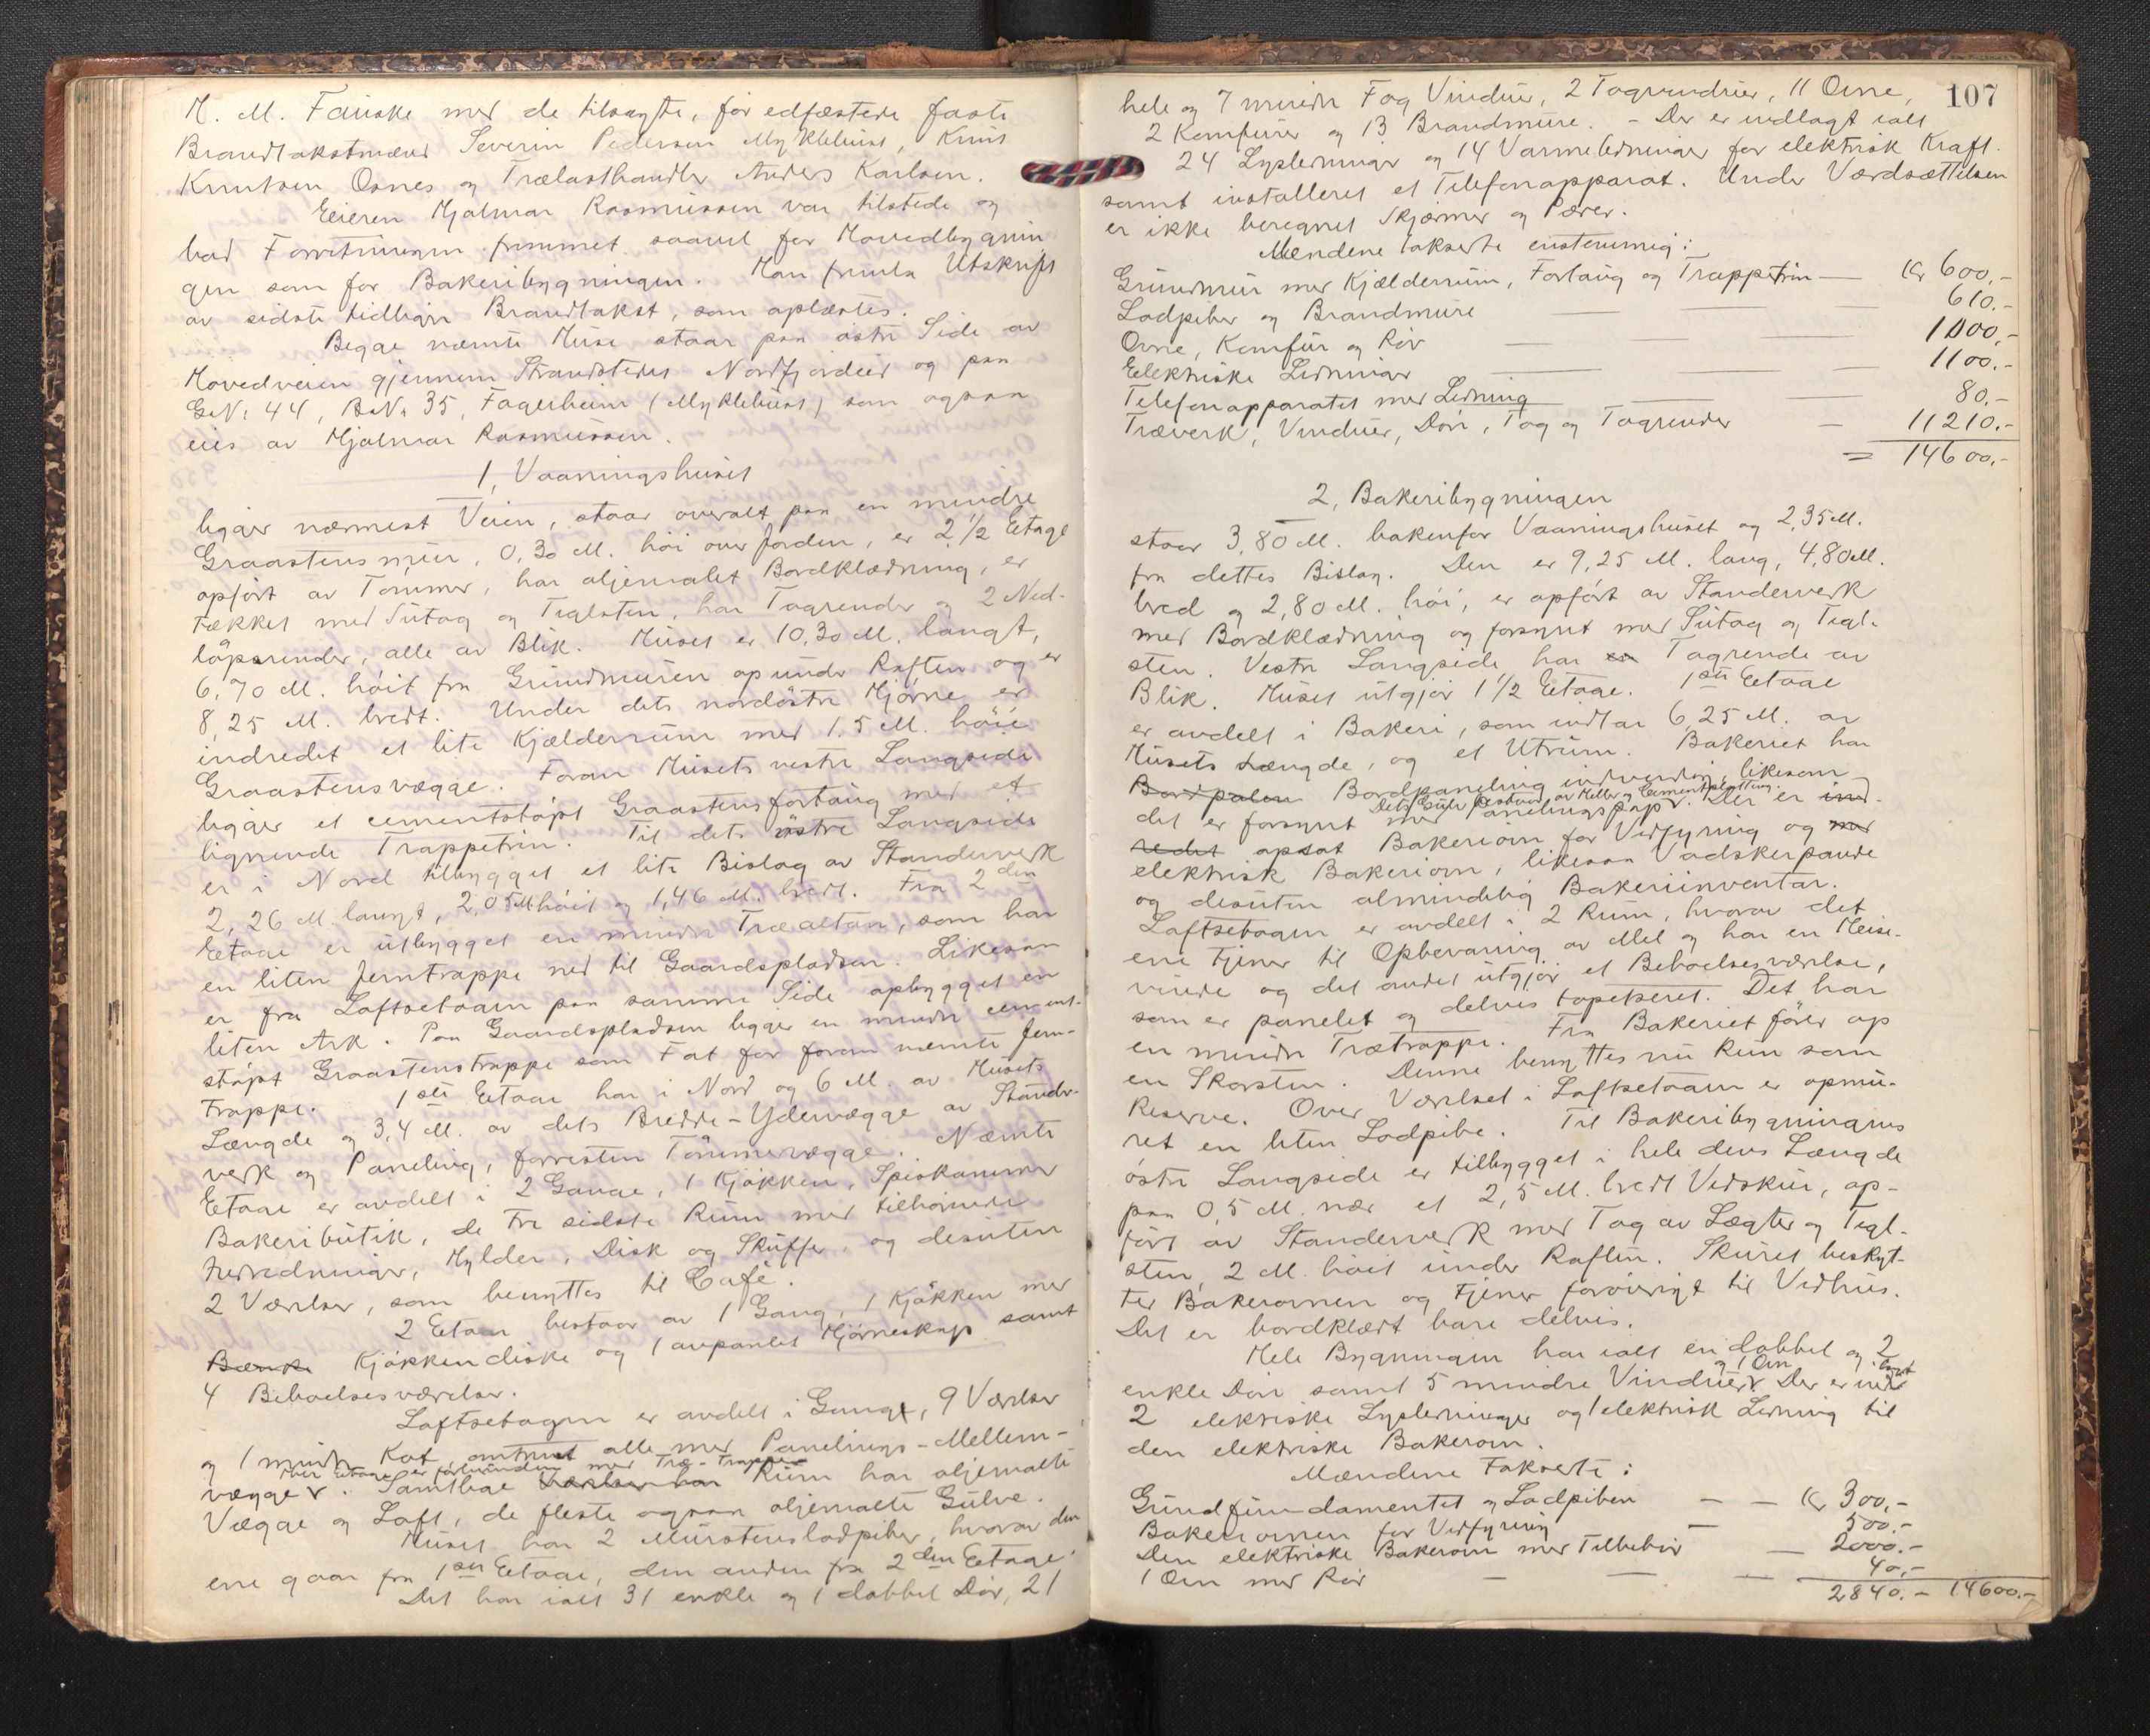 H. M. Fauske med de tilsagte, før edfæstede faste
Brandtakstmænd Severin Pedersen Myklebust, Knut
Knutsen Osnes og Trælasthandler Anders Karlsen.
Eieren Hjalmar Rasmussen var tilstede og
bad Forretningen fremmet saavel for Hovedbygnin
gen som for Bakeribygningen. Han fremla Utskrift
av sidste tidligere Brandtakst, som oplæstes.
Begge nævnte Huse staar paa østre Side av
Hovedveien gjennem Strandstedet Nordfjordeid og paa
G.N: 44, B.N: 35, Fagerheim (Myklebust) som ogsaa
eies av Hjalmar Rasmussen.
1, Vaaningshuset
ligger nærmest Veien, staar overalt paa en mindre
Graastensmur, 0,30 M. høi over Jorden, er 2 1/2 Etage
opført av Tømmer, har oljemalet Bordklædning, er
tækket med Sutag og Teglsten, har Tagrender og 2 Ned-
løpsrender, alle av Blik. Huset er 10,30 M. langt,
6,70 M. høit fra Grundmuren op under Raften og er
8,25 M. bredt. Under dets nordøstre Hjørne er
indredet et lite Kjælderrum med 1.5 M. høie
Graastensvægge. Foran Husets vestre Langside
ligger et cementstøpt Graastensfortaug med et
lignende Trappetrin. Til dets østre Langside
er i Nord tilbygget et lite Bislag av Standerverk
2,26 M. langt, 2,05 M høit og 1,46 M. bredt. Fra 2den
Etage er utbygget en mindre Træaltan, som har
en liten Jerntrappe ned til Gaardspladsen. Likesaa
er fra Loftsetagen paa samme Side opbygget en
liten Ark. Paa Gaardspladsen ligger en mindre cement-
støpt Graastenstrappe som Fot for foran nævnte Jern-
trappe. 1ste Etage har i Nord og 6 M. av Husets
Længde og 3,4 M. av dets Bredde - Ydervægge av Stander-
verk og Paneling, forresten Tømmervægge. Nævnte
Etage er avdelt i 2 Gange, 1 Kjøkken, Spiskammer
Bakeributik, de tre sidste Rum med tilhørende
Indredninger, Hylder, Disk og Skuffer, og desuten
2 Værelser, som benyttes til Café.
2 Etage bestaar av 1 Gang, 1 Kjøkken med
Bænke Kjøkkendiske og 1 avpanlet Hjørneskap samt
4 Beboelsesværelser.
Loftsetagen er avdelt i Gange, 9 Værelser
og 1 mindre Kot omtrent alle med Panelings-Mellem-
Etage er forbunden med Træ-Trapper
vægger. Samtlige Værelser har Rum har oljemalte
Vægge og Loft, de fleste ogsaa oljemalte Gulve.
Huset har 2 Murstenslodpiber, hvorav den
ene gaar fra 1ste Etage, den anden fra 2den Etage.
Det har ialt 31 enkle og 1 dobbel Dør, 21
107
hele og 7 mindre Fag Vinduer, 2 Tagvinduer, 11 Ovne,
2 Komfurer og 13 Brandmure. - Der er indlagt ialt
24 Lysledninger og 14 Varmeledninger for elektrisk Kraft.
samt installeret et Telefonapparat. Under Værdsættelsen
er ikke beregnet Skjærmer og Pærer.
Mændene takserte enstemmig:
Grundmur med Kjælderrum, Fortaug og Trappetrin — Kr 600,-
Lodpiber og Brandmure — 610.-
Ovne, Komfur og Rør — 1000,-
Elektriske Ledninger — 1100.-
Telefonapparatet med Ledning — 80.-
Træverk, Vinduer, Dør, Tag og Tagrender — 11210.-
= 14600.-
2, Bakeribygningen
staar 3,80 M. bakenfor Vaaningshuset og 2,35 M.
fra dettes Bislag. Den er 9,25 M. lang, 4,80 M.
bred og 2,80 M. høi, er opført av Standerverk
med Bordklædning og forsynt med Sutag og Tegl-
sten. Vestre Langside har en Tagrende av
Blik. Huset utgjør 1 1/2 Etage. 1ste Etage
er avdelt i Bakeri, som indtar 6,25 M. av
Husets Længde, og et Utrum. Bakeriet har
Bordpalen Bordpaneling indvendig, likesom
Dets Gulv bestaar av Heller og Cementplatting.
det er forsynt med Panelingspap. Der er ind-
redet opsat Bakeriovn for Vedfyring og med
elektrisk Bakeriovn, likesaa Vadskepande
og desuten almindelig Bakeriinventar.
Loftsetagen er avdelt i 2 Rum, hvorav det
ene tjener til Opbevaring av Mel og har en Heise-
vinde og det andet utgjør et Beboelsesværelse,
som er panelet og delvis tapetseret. Det har
en mindre Trætrappe. Fra Bakeriet fører op
en Skorsten. Denne benyttes nu kun som
Reserve. Over Værelset i Loftsetagen er opmu-
ret en liten Lodpibe. Til Bakeribygningens
østre Langside er tilbygget i hele dens Længde
paa 0,5 M. nær et 2,5 M. bredt Vedskur, op-
ført av Standerverk med Tag av Lægter og Tegl-
sten, 2 M. høit under Raften. Skuret beskyt-
ter Bakerovnen og tjener forøvrigt til Vedhus.
Det er bordklædt bare delvis.
Hele Bygningen har ialt en dobbel og 2
og 1 Ovn
enkle Dør samt 5 mindre Vinduer. Der er indlagt
2 elektriske Lysledninger og 1 elektrisk Ledning til
den elektriske Bakerovn.
Mændene takserte:
Grundfundamentet og Lodpiben — — Kr 300,-
Bakerovnen for Vedfyring — 500.-
Den elektriske Bakerovn med Tilbehør — 2000.-
1 Ovn med Rør — — — 40,-
2840.- 14600.-